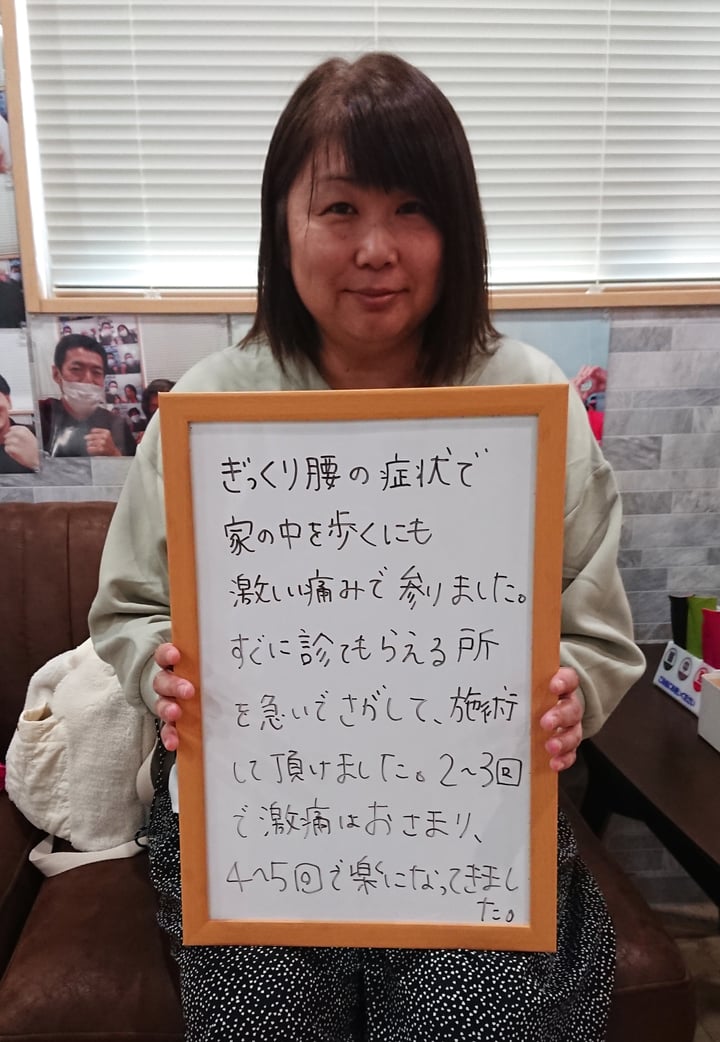 ぎっくり腰の症状で
家の中を歩くにも
激しい痛みで参りました。
すぐに診てもらえる所
を急いでさがして、施術
して頂けました。2〜3回
で激痛はおさまり、
4〜5回で楽になってきまし
た。